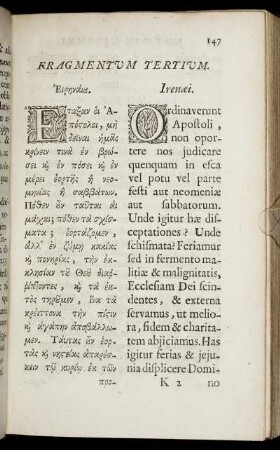 147
FRAGMENTUM TERTIUM.
Εἰρηναίου.
Ἔταξαν οἱ Ἀ-
πόστολοι, μὴ
δεῖν ἡμᾶς
κρίνειν τινὰ ἐν βρώ-
σει ϗ ἐν πόσει ϗ ἐν
μέρει ἑορτῆς ἢ νε-
μηνίας ἢ σαββάτων.
Πόθεν ὖν ταῦται αἱ
μάχαι; πόθεν τὰ σχίσ-
ματα; ἑορτάζομεν,
ἀλλ' ἐν ζύμῃ κακίας
ϗ πονηρίας, τὴν ἐκ-
κλησίαν τῦ Θεῦ διαῤ-
ῥίπτοντες, ϗ τὰ ἐκ-
τὸς τηρῦμεν, ἵνα τὰ
κρείττονα τὴν πίστιν
ϗ ἀγάπην ἀποβάλλω-
μεν. Ταύτας ὖν ἑορ-
τὰς ϗ νηστείας ἀπαρέσ-
κειν τῷ κυρίῳ ἐκ τῶν
προ-
Irenæi.
Ordinaverunt
Apostoli,
non opor-
tere nos judicare
quenquam in esca
vel potu vel parte
festi aut neomeniæ
aut sabbatorum.
Unde igitur hæ dis-
ceptationes? Unde
schismata? Feriamur
sed in fermento ma-
litiæ & malignitatis,
Ecclesiam Dei scin-
dentes, & externa
servamus, ut melio-
ra, fidem & charita-
tem abjiciamus. Has
igitur ferias & jeju-
nia displicere Domi-
K 2 no